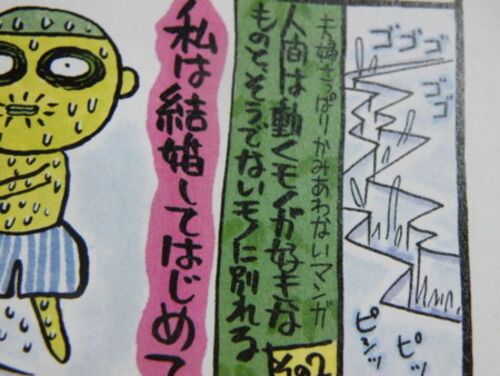 ゴゴゴ
ゴゴ
ピシッ
ピッ
夫婦さっぱりかみあわないマンガ
人間は動くモノが好きな
ものと、そうでないモノに別れる
その2
私は結婚してはじめて